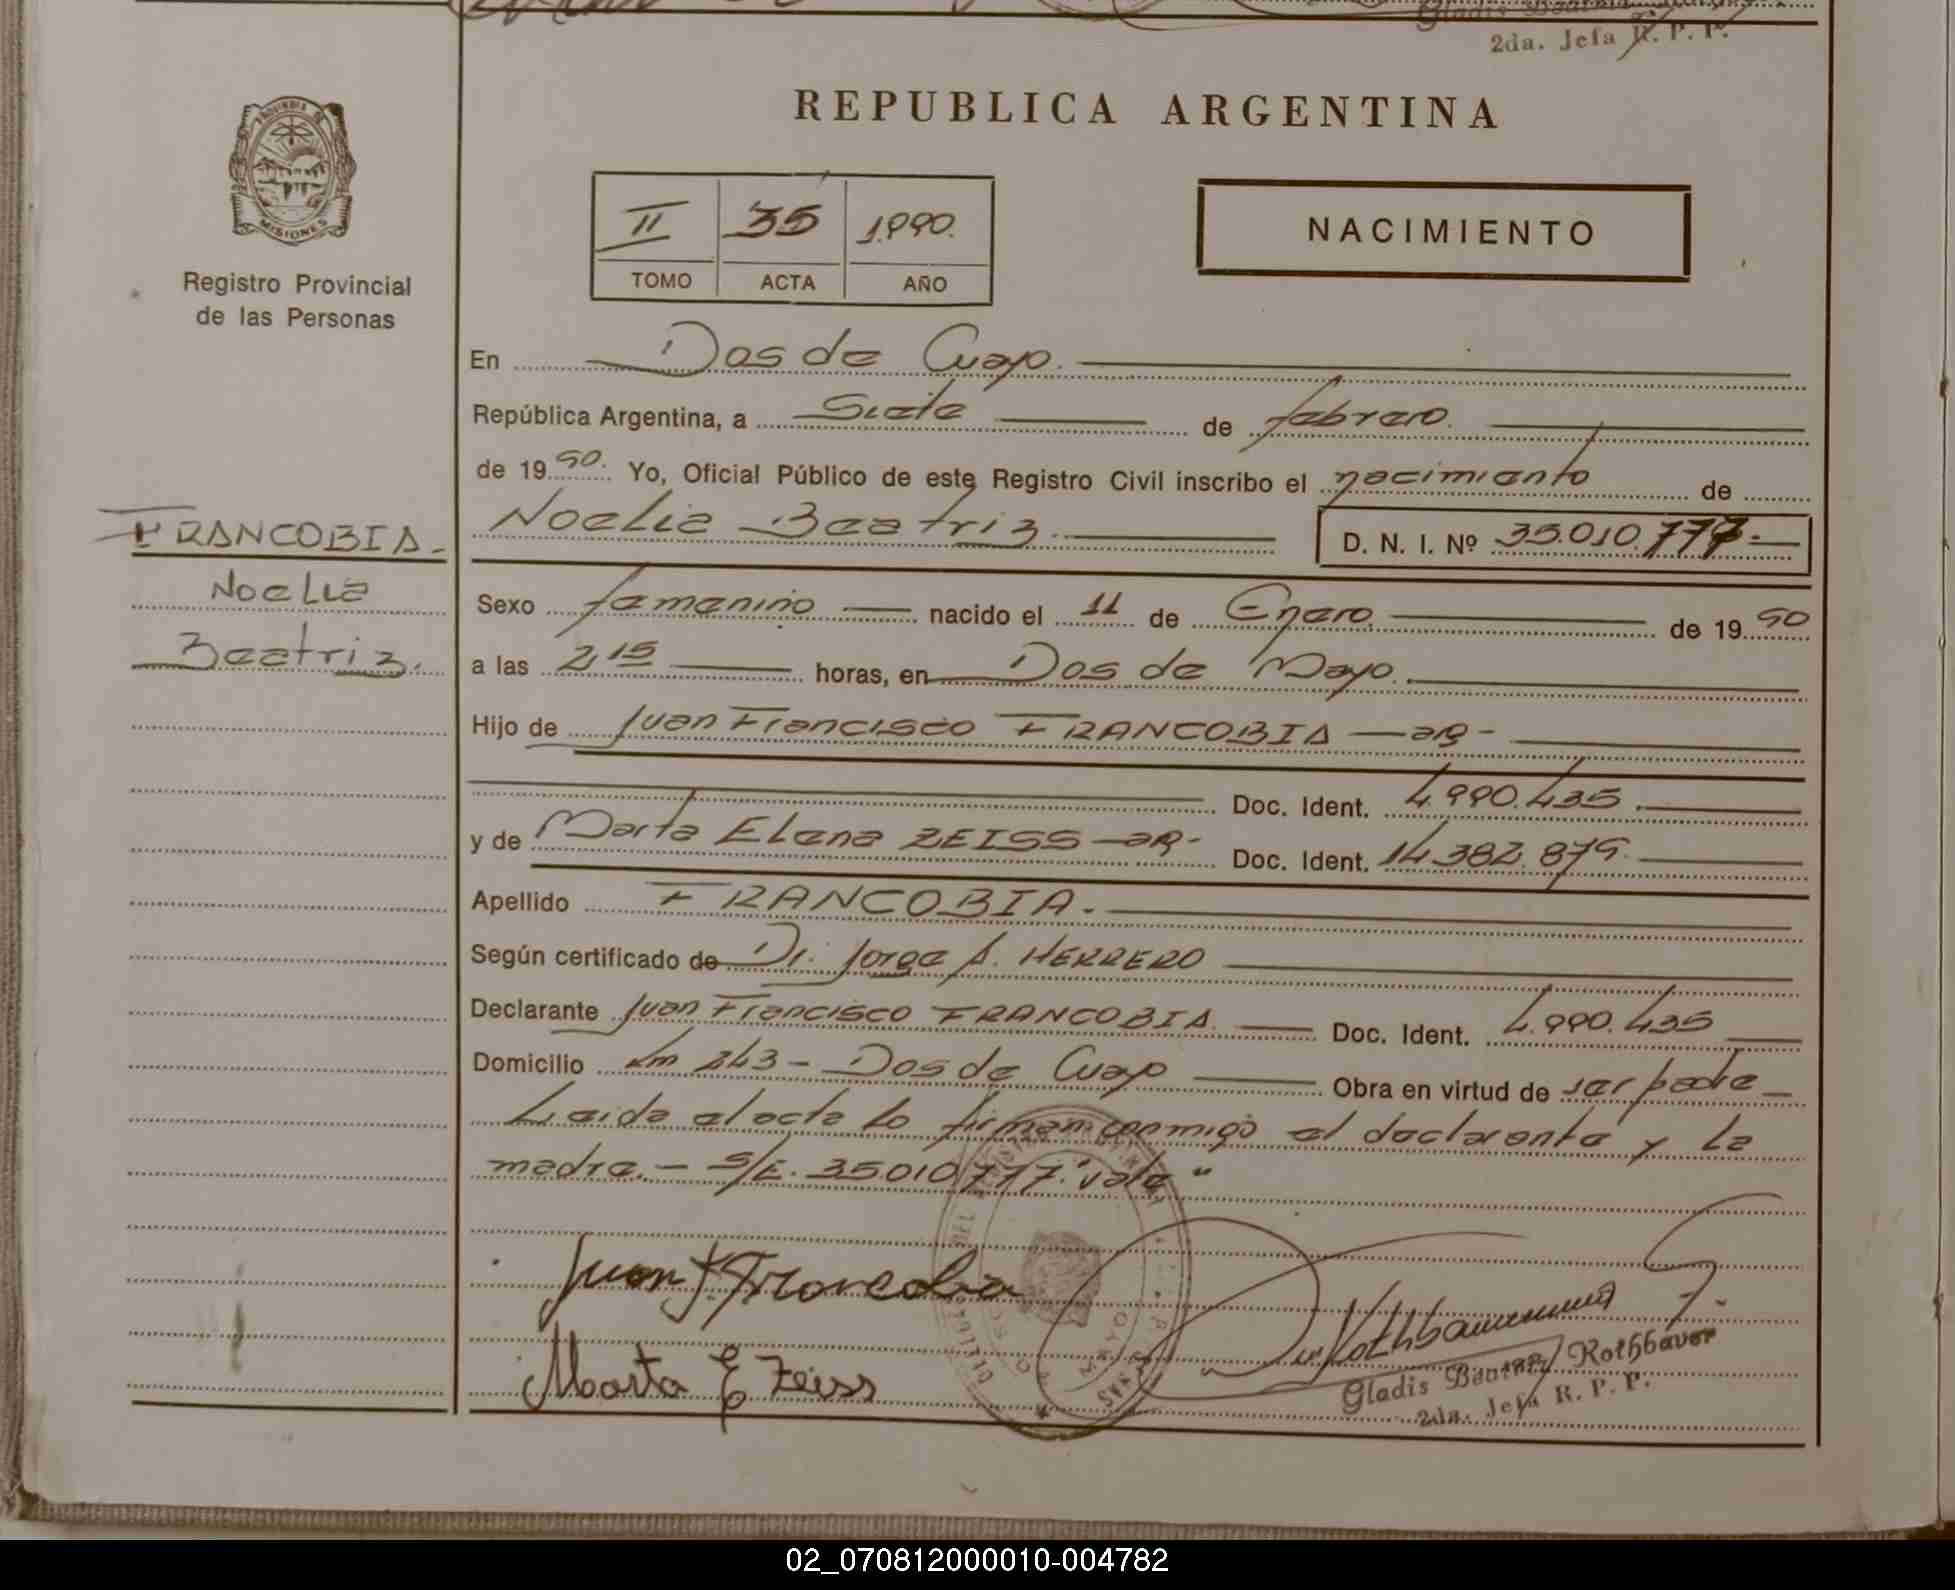 2da. Jefa R. P. P.
REPUBLICA ARGENTINA
PROVINCIA
MISIONES
Registro Provincial
de las Personas
II 35 1.990.
TOMO ACTA AÑO
NACIMIENTO
En Dos de Cuayo.
República Argentina, a Siete de febrero.
de 1990. Yo, Oficial Público de este Registro Civil inscribo el nacimiento de
Noelia Beatriz. D. N. I. Nº 35.010.777.-
FRANCOBIA.
Noelia
Beatriz.
Sexo femenino nacido el 11 de Enero de 1990
a las 2,15 horas, en Dos de Mayo.
Hijo de Juan Francisco FRANCOBIA - ar -
Doc. Ident. 4.990.435.
y de Marta Elena ZEISS - ar - Doc. Ident. 14.382.879.
Apellido FRANCOBIA.
Según certificado de Dr. Jorge A. HERRERO
Declarante Juan Francisco FRANCOBIA. Doc. Ident. 4.990.435
Domicilio Km 243 - Dos de Cuayo Obra en virtud de ser padre
Leida el acta lo firman conmigo el declarante y la
madre. - S/E. 35010777. "vale"
Juan F. Francobia
Marta E Zeiss
Rothbauer
Gladis Beatriz Rothbauer
2da. Jefa R. P. P.
02_070812000010-004782